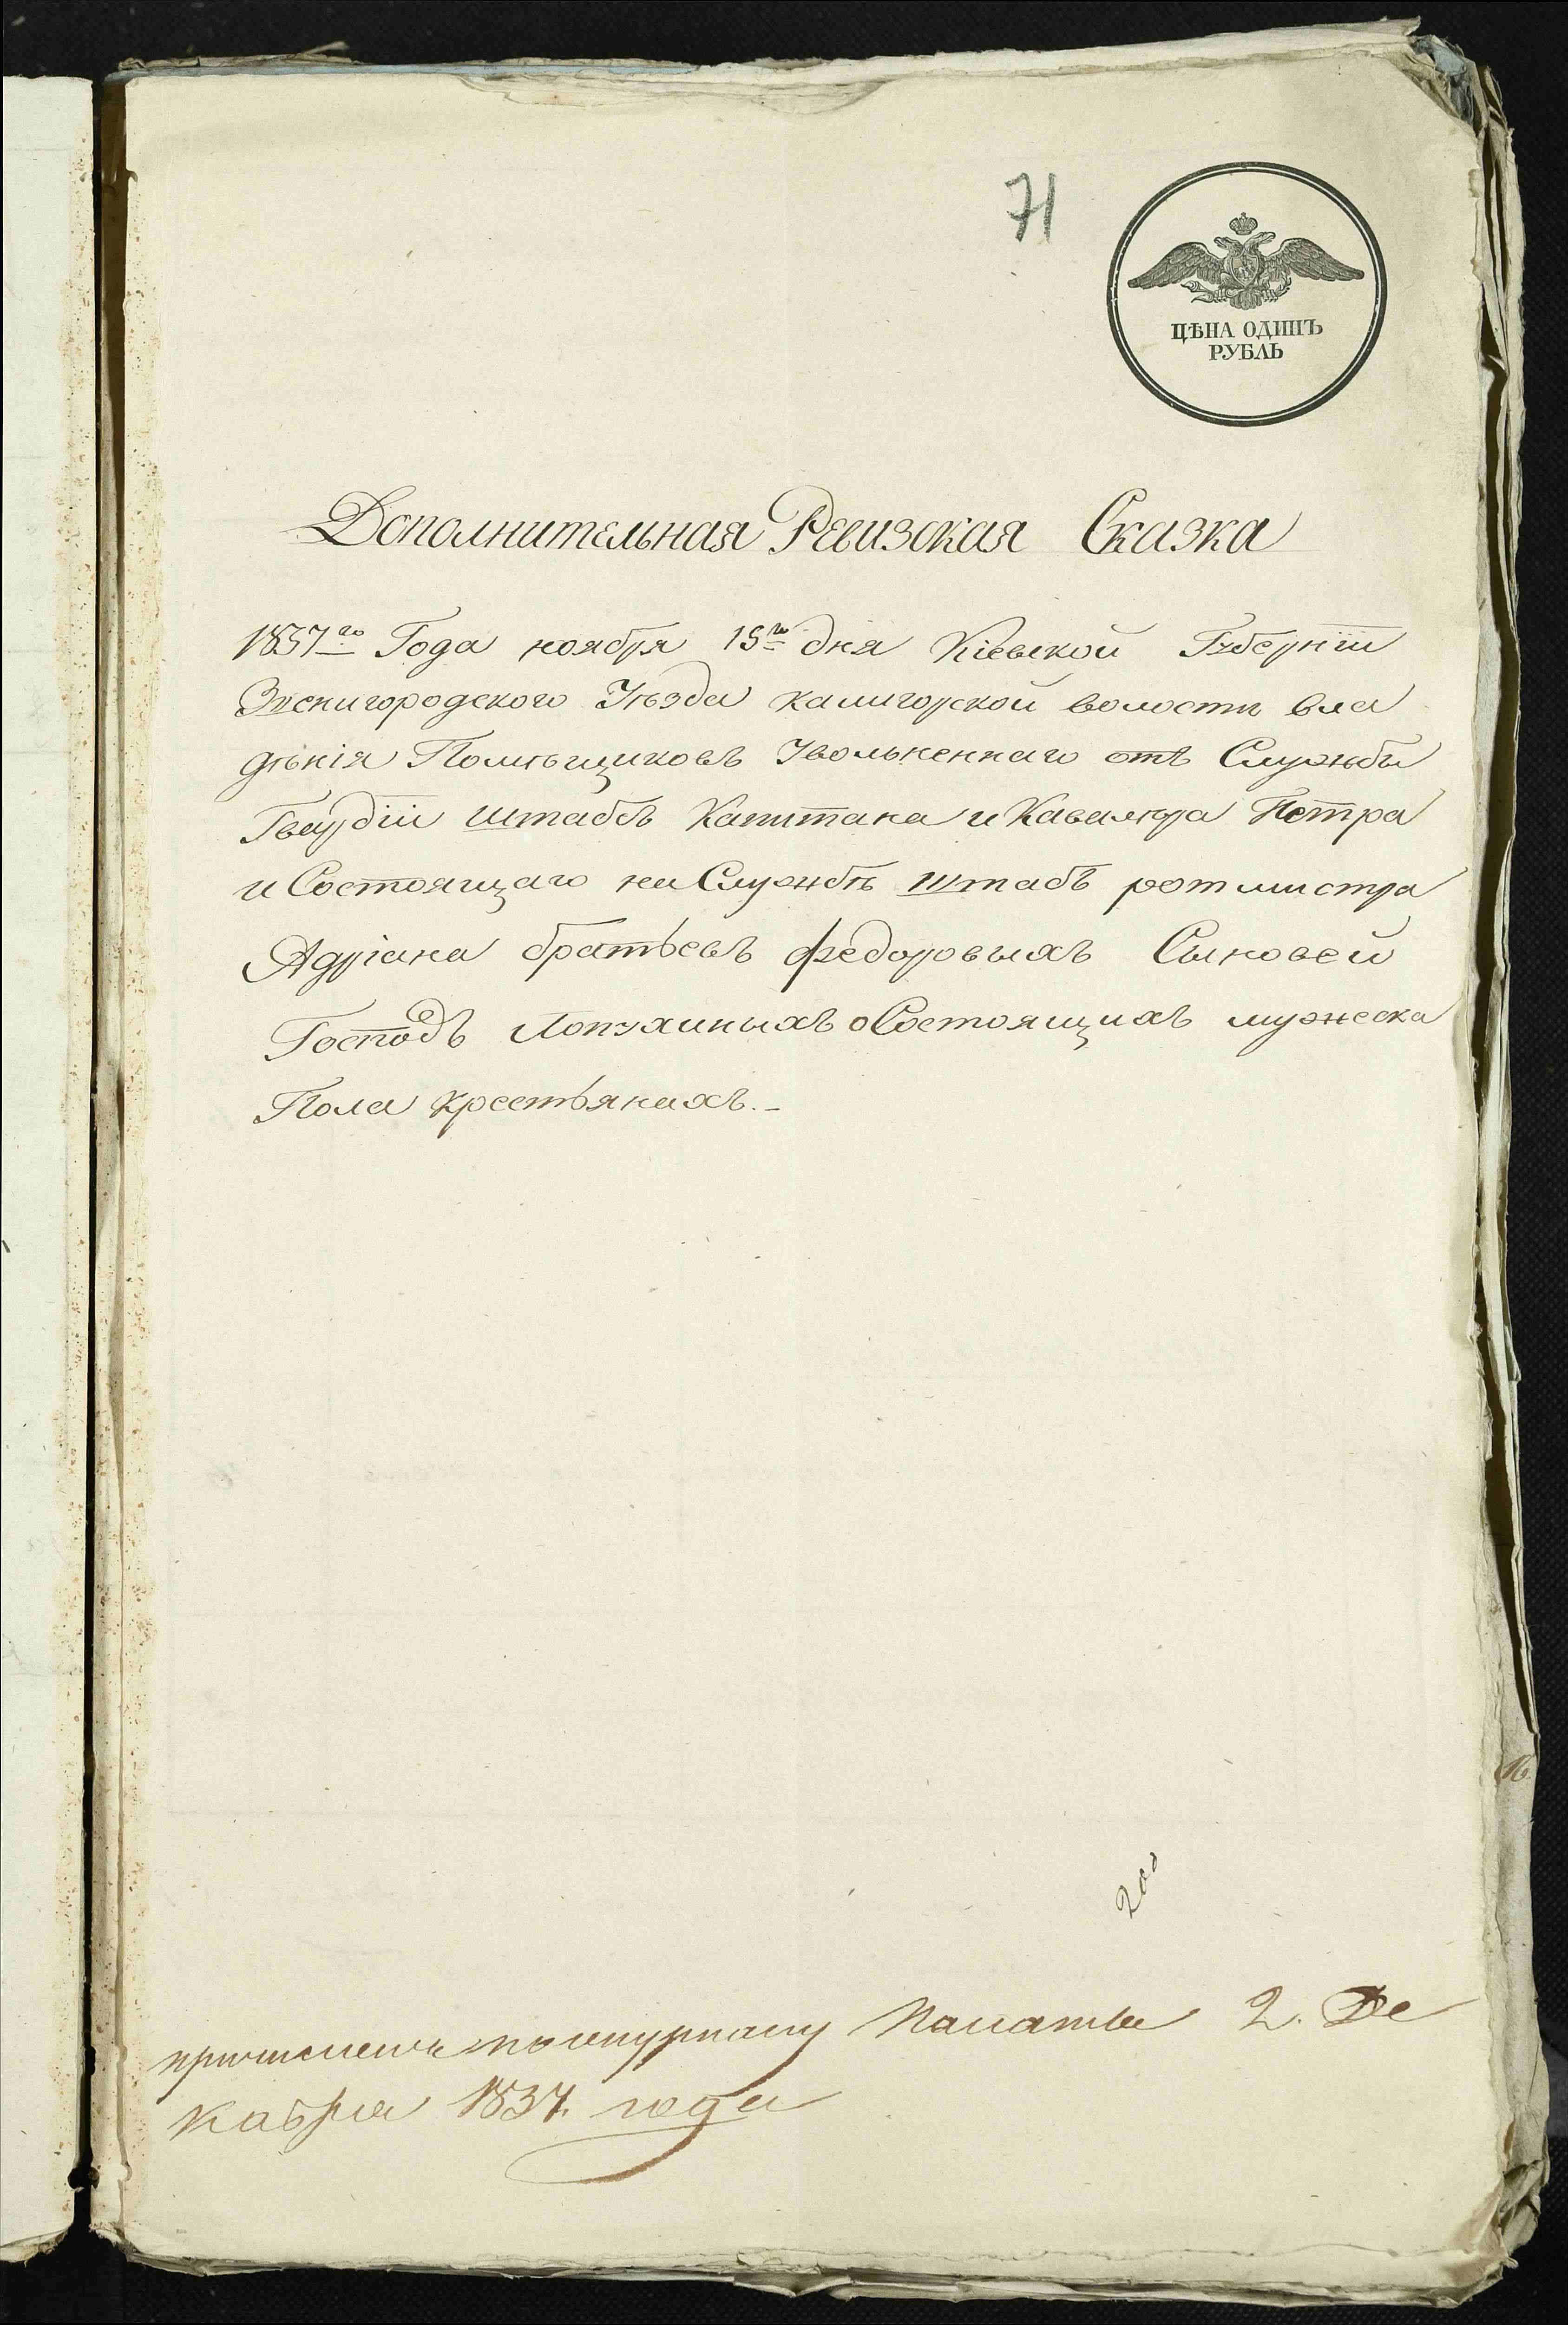 71
ЦѢНА ОДИНЪ
РУБЛЬ
Дополнительная Ревизская Сказка
1837го Года ноября 15го дня Кіевской Губерніи
Звенигородского Уѣзда Калигорской волости вла
дѣнія Помѣщиковъ Увольненнаго отъ Службы
Гвардіи Штабсъ Капитана и Кавалера Петра
и Состоящаго на Службѣ Штабъ ротмистра
Адріана братьевъ Федоровыхъ Сыновей
Господъ Лопухиныхъ о Состоящихъ мужеска
Пола крестьянахъ.-
200
Палаты 2. Де
кабря 1837. года
16